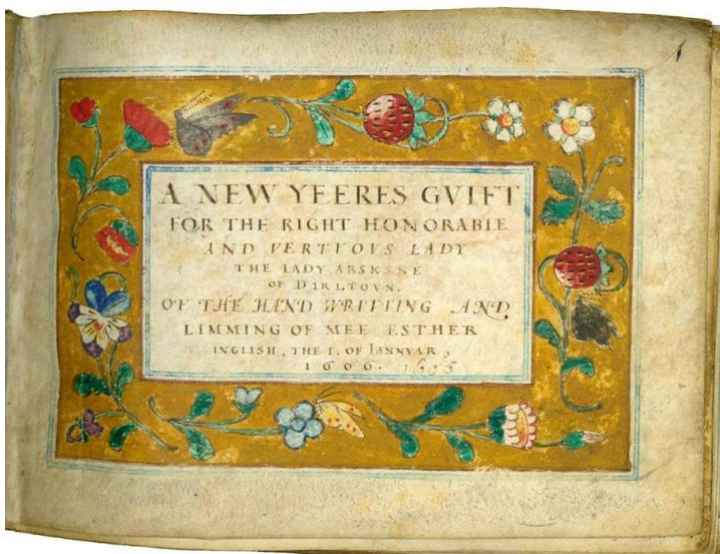 A NEW YEERES GVIFT
FOR THE RIGHT HONORABLE
AND VERTVOVS LADY
THE LADY ARSKENE
OF DIRLTOVN.
OF THE HAND WRITTING AND
LIMMING OF MEE ESTHER
INGLISH, THE I. OF IANNVAR,
1606.
1